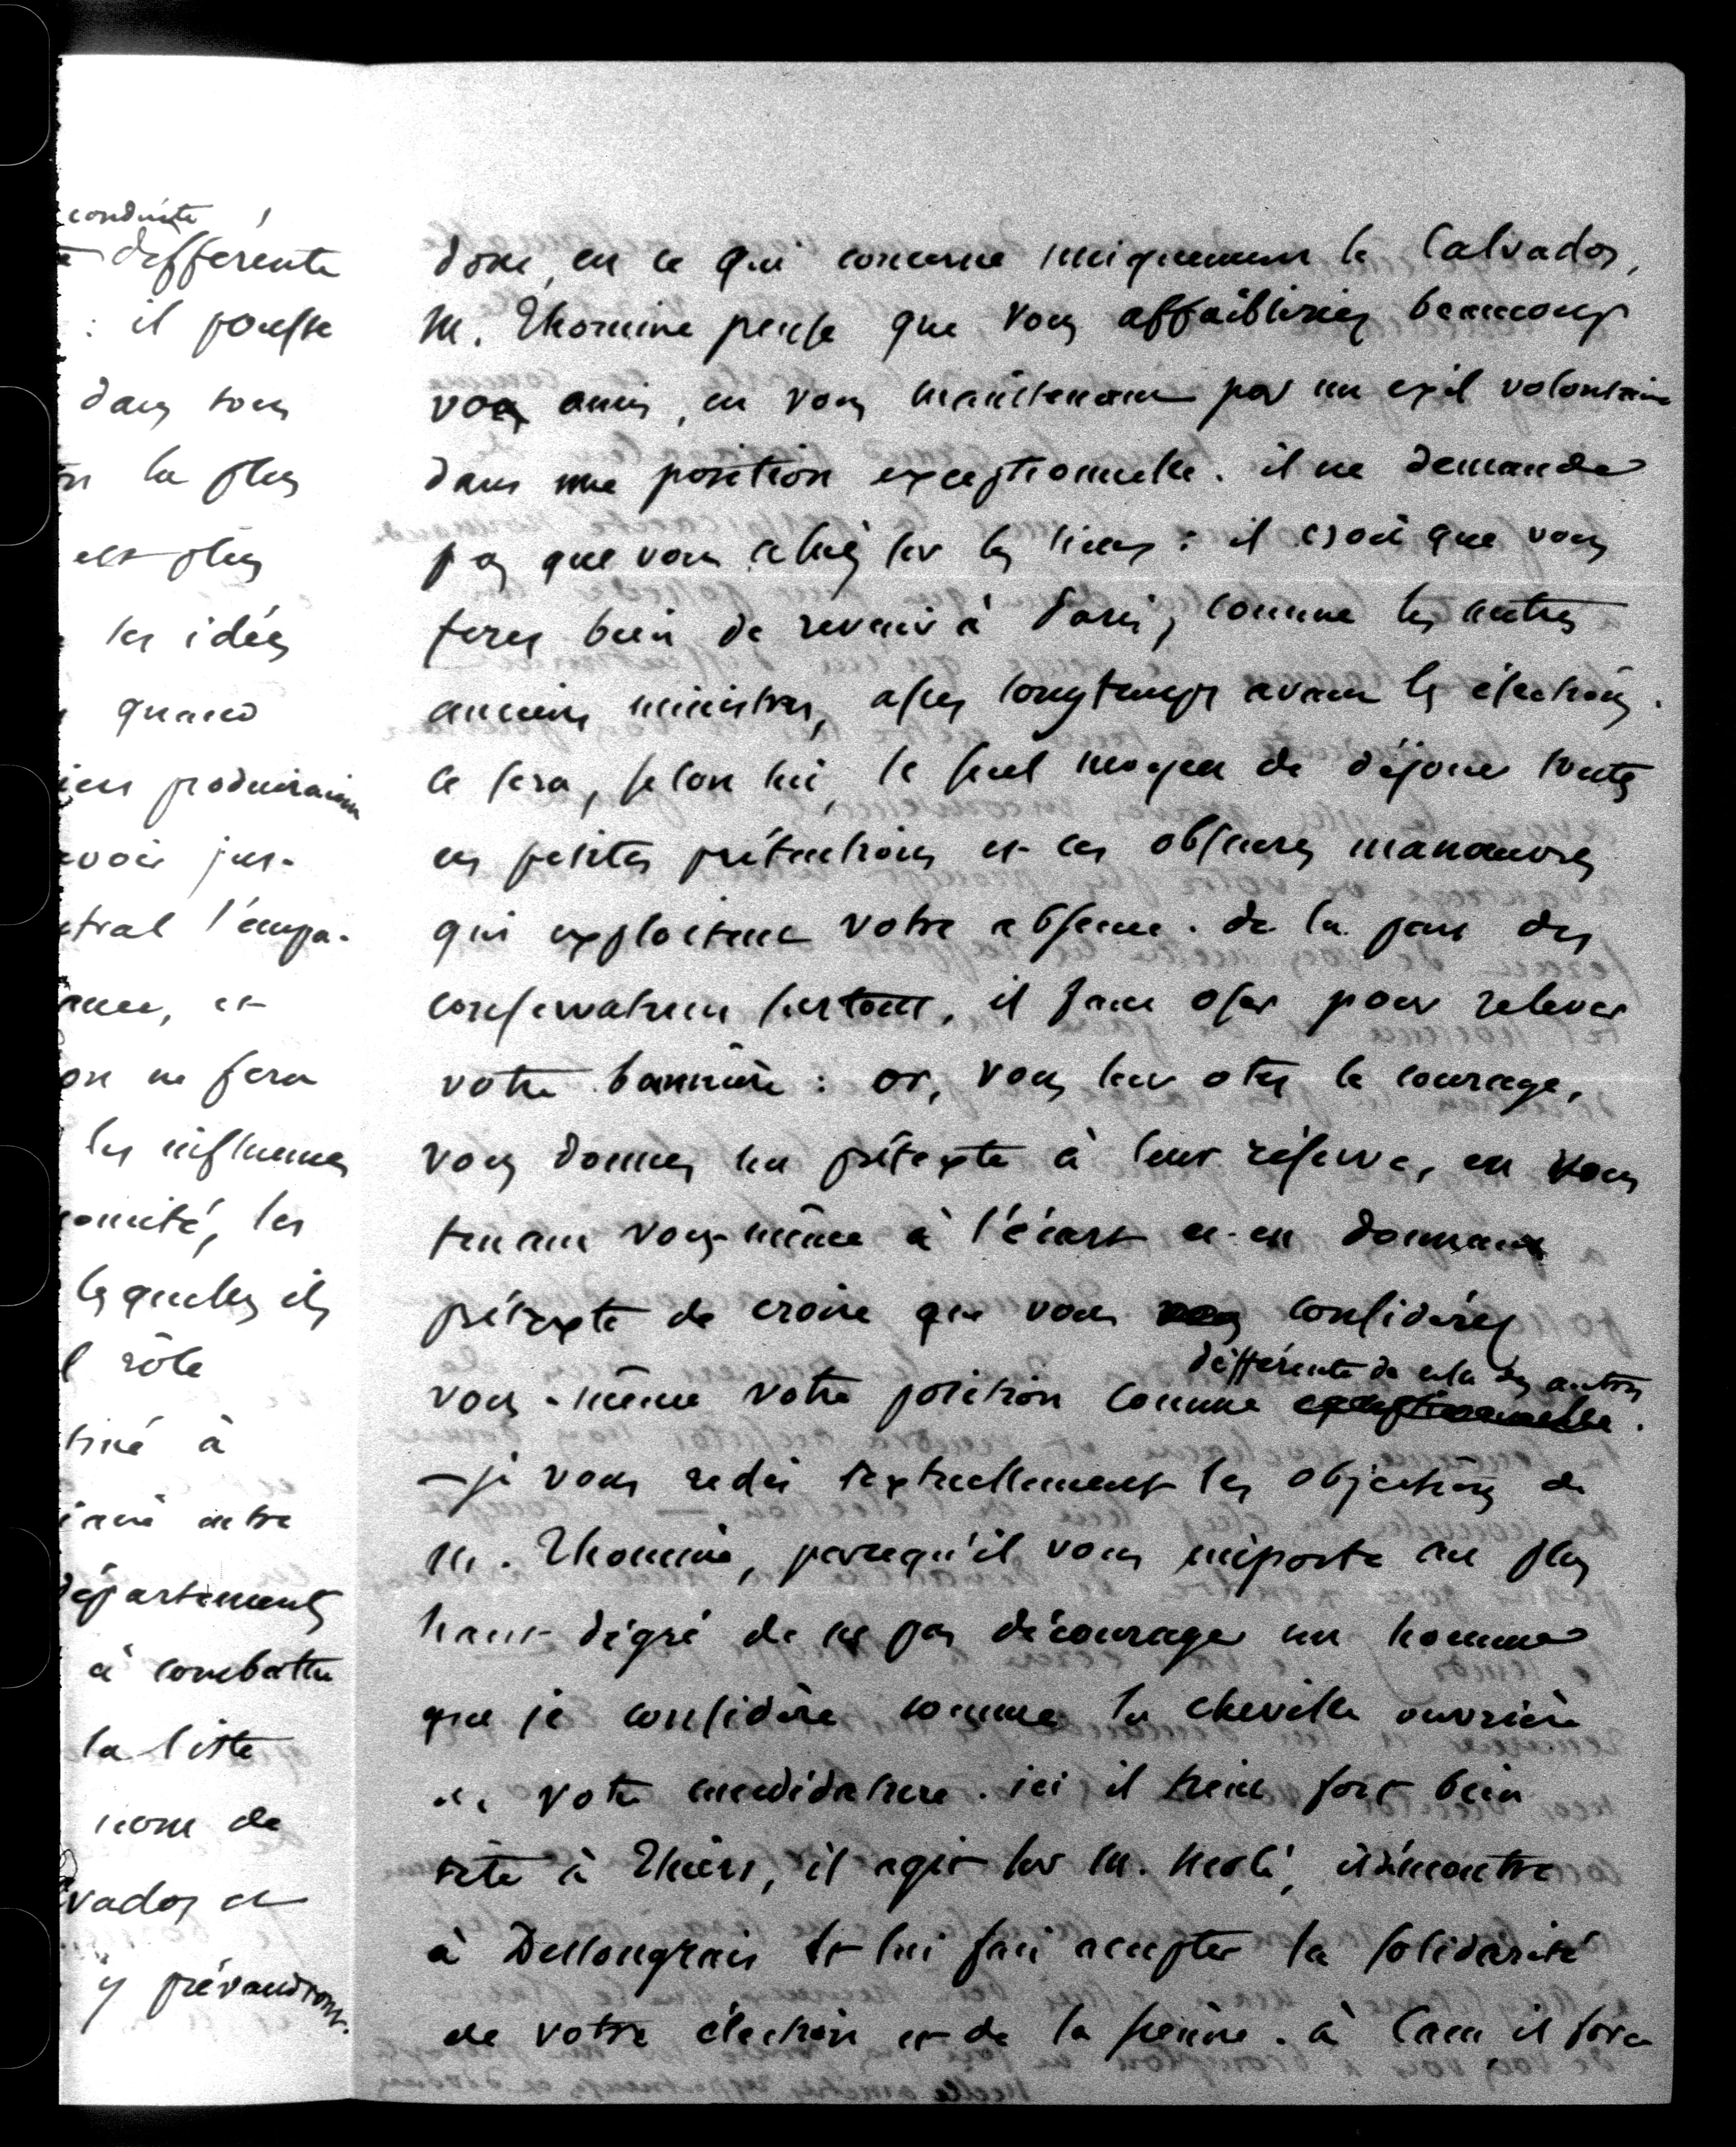 conduite
différente
: il pousse
dans son
la plus
est plus
les idées
quand
produiraient
voir jus-
tral l'empa-
et
on ne fera
les influences
comité, les
lesquelles ils
rôle
tiné à
autre
départements
à combattre
la liste
nom de
vados et
y prévaudront.
donc, en ce qui concerne uniquement le Calvados,
M. Thomine pense que vous affaibliriez beaucoup
vos amis, en vous maintenant par un exil volontaire
dans une position exceptionnelle. il ne demande
pas que vous alliez sur les lieux : il croit que vous
ferez bien de revenir à Paris, comme les autres
anciens ministres, assez longtemps avant les élections.
ce sera, selon lui, le seul moyen de déjouer toutes
ces petites prétentions et ces obscures manœuvres
qui exploitent votre absence. de la part des
conservateurs surtout, il faut oser pour relever
votre bannière : or, vous leur otez le courage,
vous donnez un prétexte à leur réserve, en vous
tenant vous-même à l'écart et en donnant
prétexte de croire que vous considérez
différente de celle des autres
vous-même votre position comme exceptionnelle.
— je vous redis textuellement les objections de
M. Thomine, parcequ'il vous importe au plus
haut dégré de ne pas décourager un homme
que je considère comme la cheville ouvrière
de votre candidature. ici il tient fort bien
tête à Thiers, il agit sur M. Molé, il démontre
à Deslongrais et lui fait accepter la solidarité
de votre élection et de la sienne. à Caen il sera